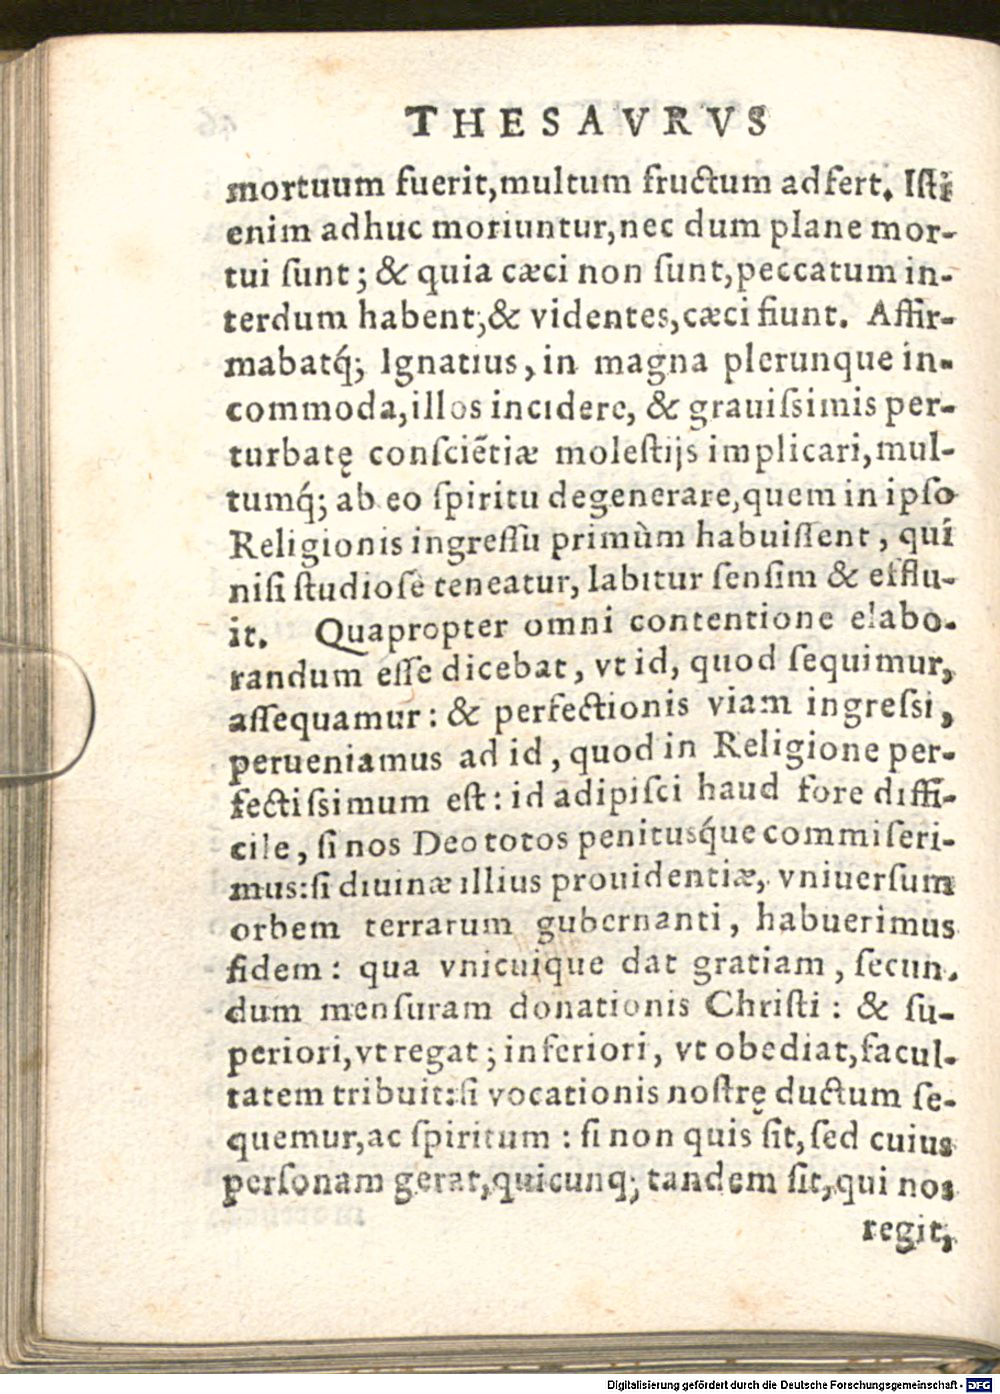 THESAVRVS
mortuum fuerit, multum fructum adfert. Iſti
enim adhuc moriuntur, nec dum plane mor-
tui ſunt; & quia cæci non ſunt, peccatum in-
terdum habent, & videntes, cæci fiunt. Affir-
mabatq́; Ignatius, in magna plerunque in-
commoda, illos incidere, & grauiſsimis per-
turbatę conſciētiæ moleſtijs implicari, mul-
tumq́; ab eo ſpiritu degenerare, quem in ipſo
Religionis ingreſſu primùm habuiſſent, qui
niſi ſtudioſè teneatur, labitur ſenſim & efflu-
it. Quapropter omni contentione elabo-
randum eſſe dicebat, vt id, quod ſequimur,
aſſequamur: & perfectionis viam ingreſsi,
perueniamus ad id, quod in Religione per-
fectiſsimum eſt: id adipiſci haud fore diffi-
cile, ſi nos Deo totos penitusq́ue commiſeri-
mus: ſi diuinæ illius prouidentiæ, vniuerſum
orbem terrarum gubernanti, habuerimus
fidem: qua vnicuique dat gratiam, ſecun-
dum menſuram donationis Chriſti: & ſu-
periori, vt regat; inferiori, vt obediat, facul-
tatem tribuit: ſi vocationis noſtrę ductum ſe-
quemur, ac ſpiritum: ſi non quis ſit, ſed cuius
perſonam gerat, quicunq; tandem ſit, qui nos
regit,
Digitalisierung gefördert durch die Deutsche Forschungsgemeinschaft - DFG